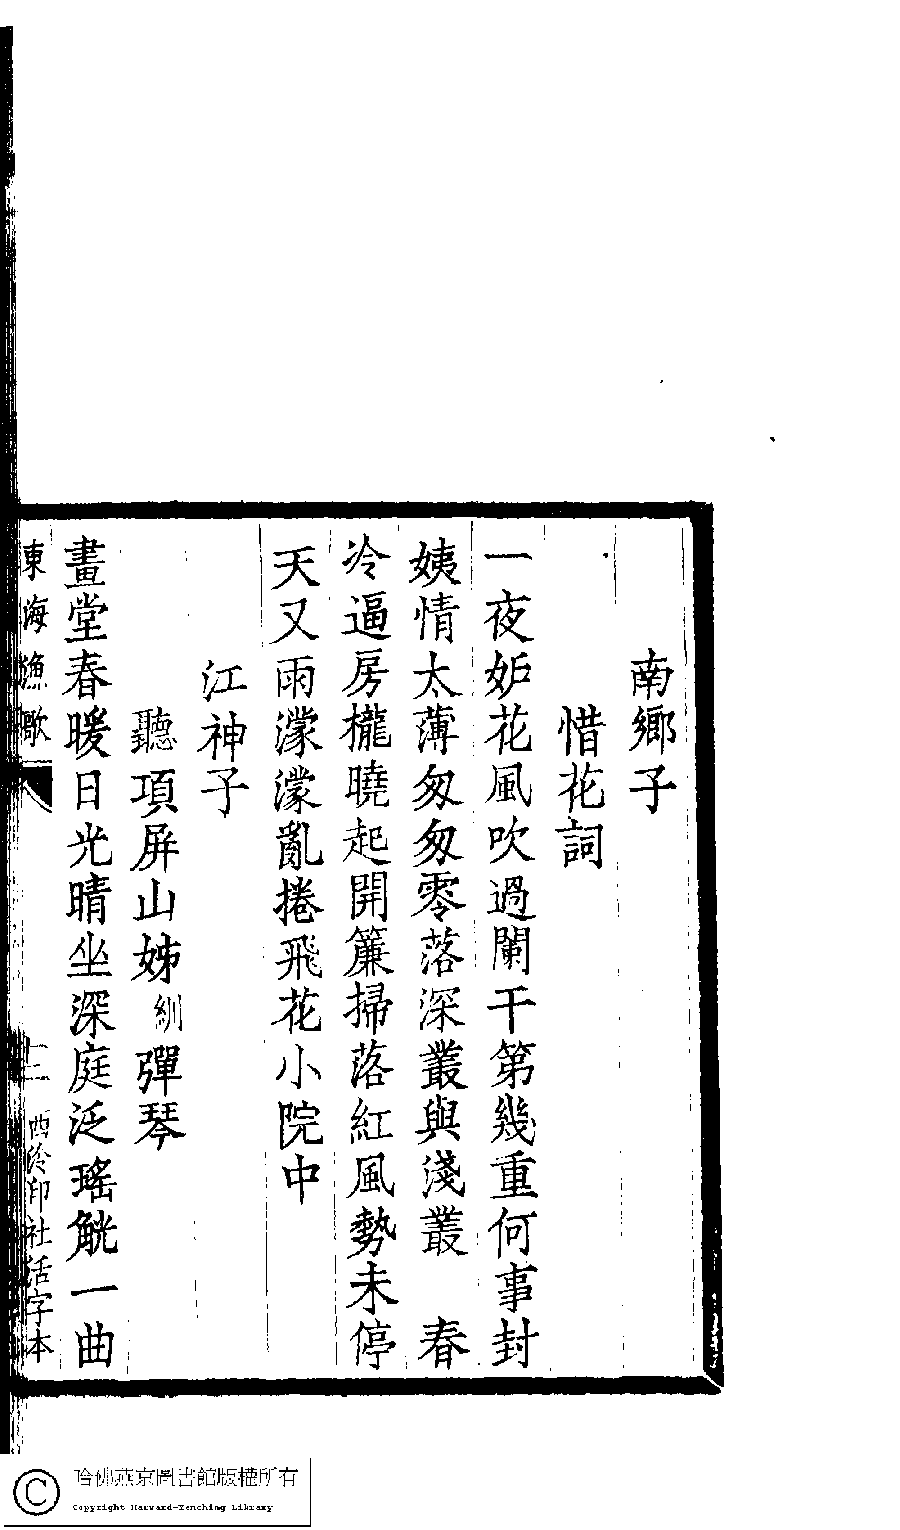 南鄉子
惜花詞
一夜妒花風吹過闌干第幾重何事封
姨情太薄匆匆零落深叢與淺叢　春
冷逼房櫳曉起開簾掃落紅風勢未停
天又雨濛濛亂捲飛花小院中
江神子
聽項屏山姊紃彈琴
畫堂春暖日光晴坐深庭泛瑤觥一曲
東海漁歌　三　西泠印社活字本
哈佛燕京圖書館版權所有
Copyright Harvard-Yenching Library